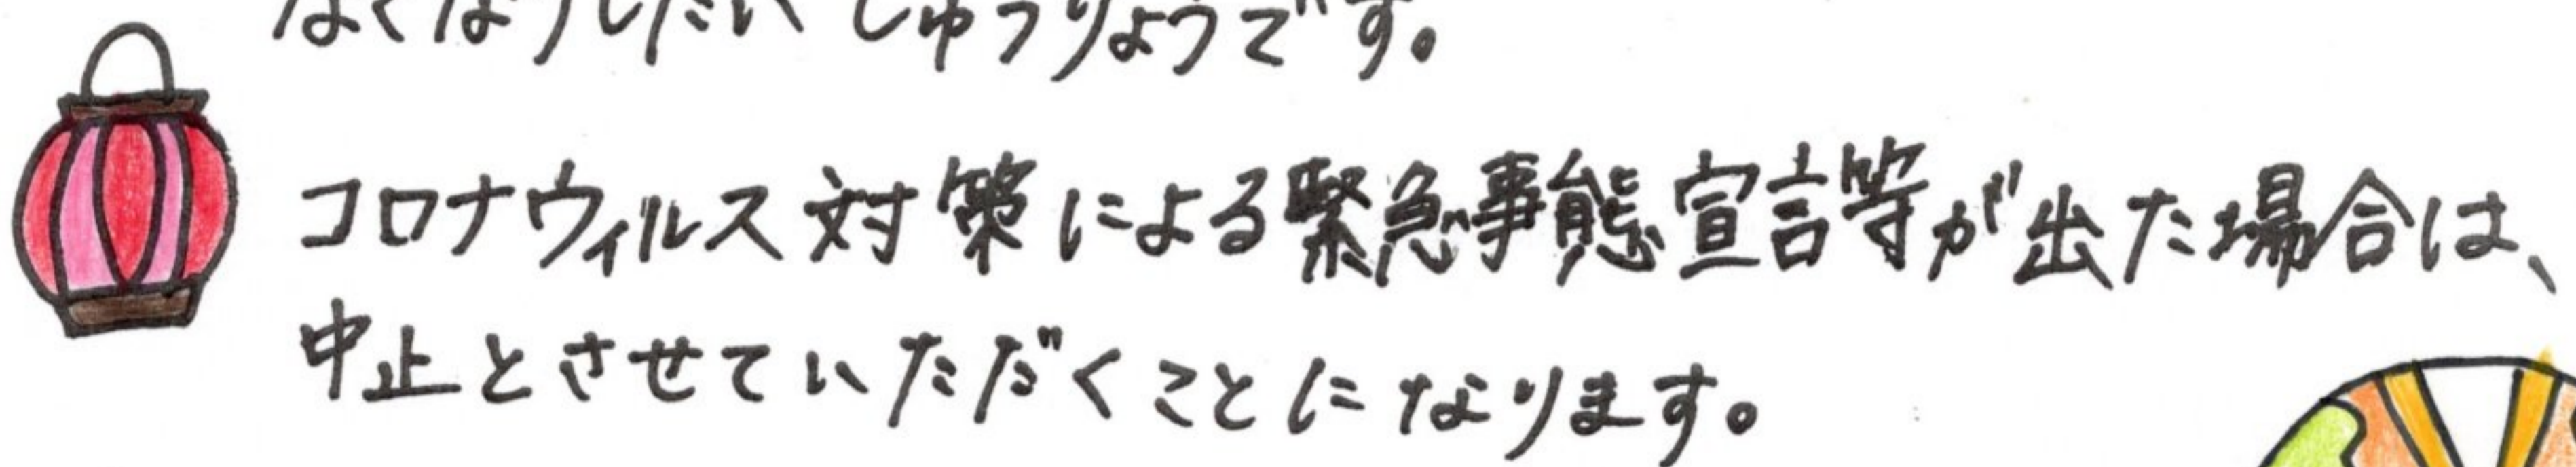 なくなりしだい しゅうりょうです。
コロナウィルス対策による緊急事態宣言等が出た場合は、
中止とさせていただくことになります。